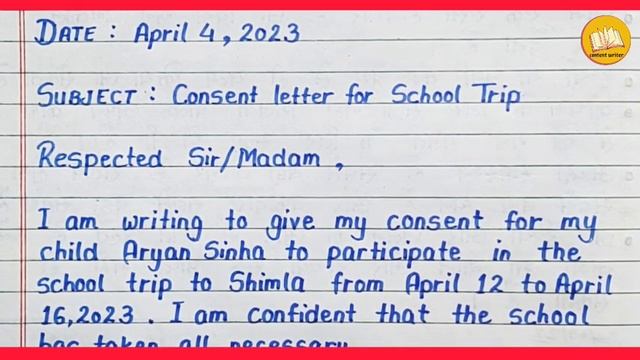 DATE : April 4, 2023
content writer
SUBJECT : Consent letter for School Trip
Respected Sir/Madam,
I am writing to give my consent for my
child Aryan Sinha to participate in the
school trip to Shimla from April 12 to April
16,2023. I am confident that the school
has taken all necessary